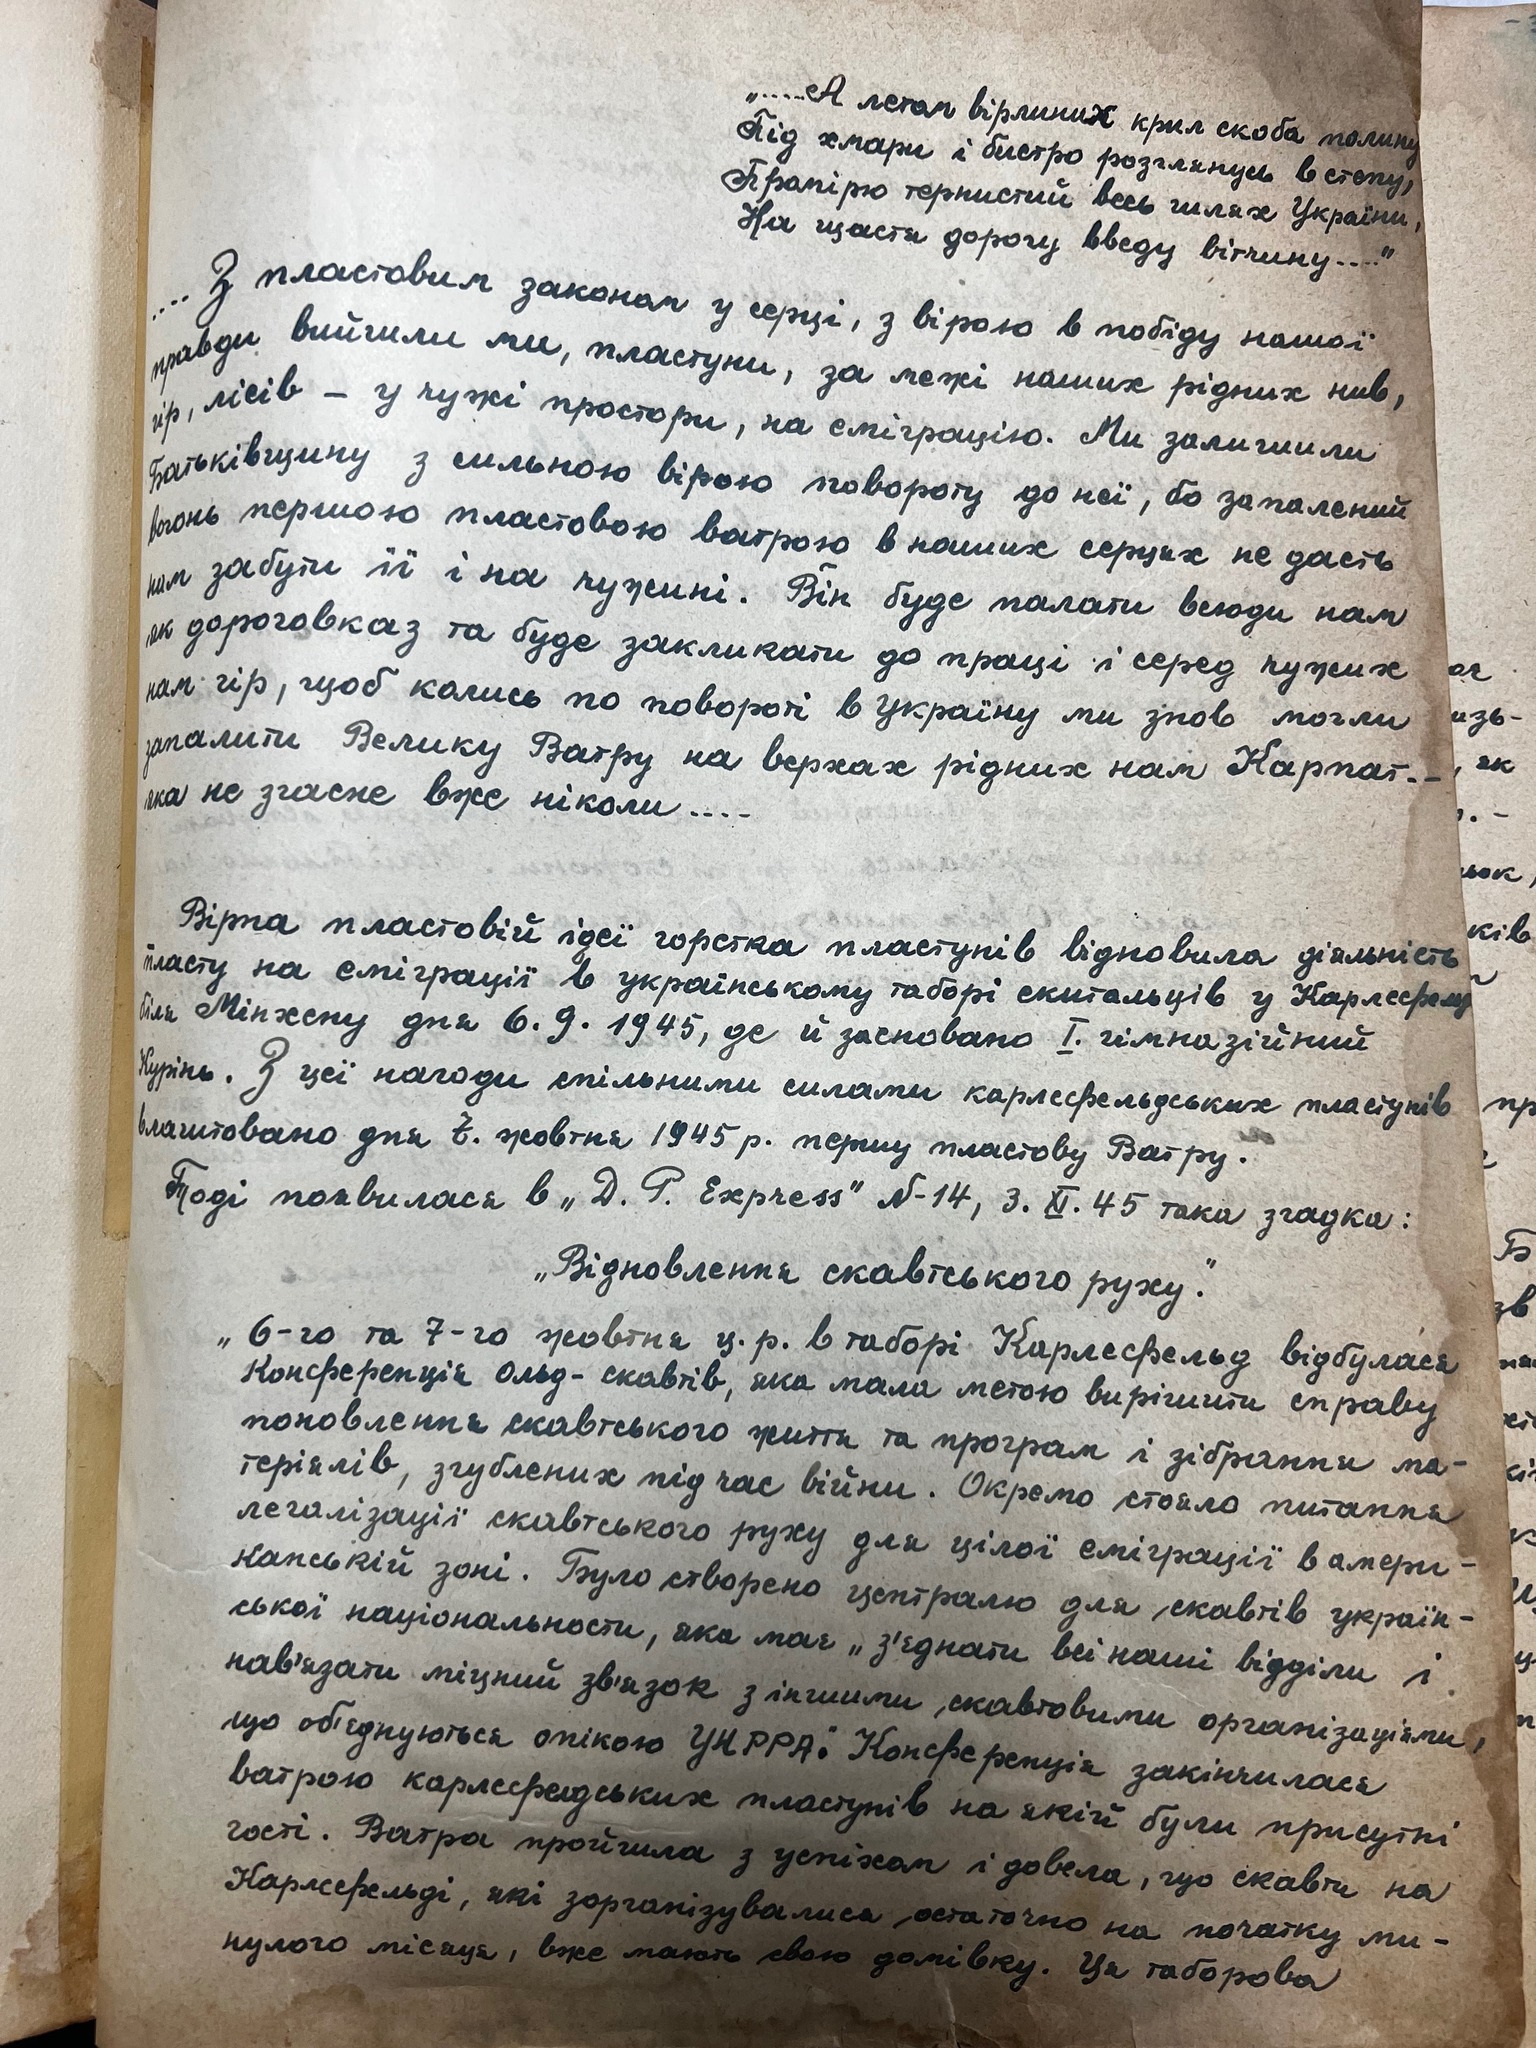 „.....А летом вірлиних крил скоба полину
Під хмари і бистро розглянусь в степу,
Промірю тернистий весь шлях України,
На щастя дорогу введу вітчину....”
.... З пластовим законом у серці, з вірою в побіду нашої
правди вийшли ми, пластуни, за межі наших рідних нив,
гір, лісів – у чужі простори, на еміграцію. Ми залишили
Батьківщину з сильною вірою повороту до неї, бо запалений
вогонь першою пластовою ватрою в наших серцях не дасть
нам забути її і на чужині. Він буде палати всюди нам
як дороговказ та буде закликати до праці і серед чужих
нам гір, щоб колись по повороті в Україну ми знов могли
запалити Велику Ватру на верхах рідних нам Карпат..–
яка не згасне вже ніколи....
Вірна пластовій ідеї горстка пластунів відновила діяльність
пласту на еміграції в українському таборі скитальців у Карлсфельд
біля Мінхену дня 6. 9. 1945, де й засновано I. гімназійний
Курінь. З цеї нагоди спільними силами карлсфельдських пластунів
влаштовано дня 7. жовтня 1945 р. першу пластову Ватру.
Тоді появилася в „D. P. Express” N-14, 3. XI. 45 така згадка:
„Відновлення скавтського руху”.
„6-го та 7-го жовтня ц. р. в таборі Карлсфельд відбулася
Конференція Ольд-скавтів, яка мала метою вирішити справу
поновлення скавтського життя та програм і зібрання ма-
теріялів, згублених під час війни. Окремо стояло питання
легалізації скавтського руху для цілої еміграції в амери-
канській зоні. Було створено централю для скавтів україн-
ської національности, яка має „з'єднати всі наші відділи і
нав'язати міцний зв'язок з іншими скавтовими організаціями,
що об'єднуються опікою УНРРА”. Конференція закінчилася
ватрою карлсфельдських пластунів на якій були присутні
гості. Ватра пройшла з успіхом і довела, що скавти на
Карлсфельді, які зорганізувалися остаточно на початку ми-
нулого місяця, вже мають свою домівку. Ця таборова